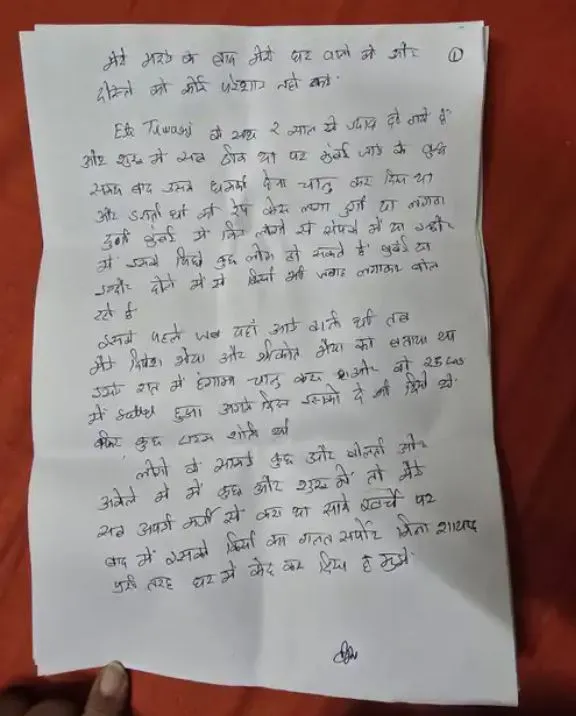 मेरे मरने के बाद मेरे घर वालो को और ①
दोस्तो को कोई परेशान नही करे.
के साथ 2 साल से ज्यादा हो गये है
और शुरू में सब ठीक था पर मुंबई जाने के कुछ
समय बाद उसने धमकी देना चालु कर दिया था
और डराती थी की रेप केस लगा दुगी या
मुंबई में किन लोगो से संपर्क में या इन्दौर
में उसके पिछे कुछ लोग हो सकते है मुंबई या
इन्दौर दोनो में से किसी भी जगह बोल
रहे है
इससे पहले जब यहाँ आने वाली थी तब
मैने भैया और भैया को बताया था
उसने रात में हंगामा चालु करा और वो 25 Lac
में हुआ अगले दिन उसको दे भी दिये थे.
फिर कुछ शांती थी
लोगो के सामने कुछ और बोलती और
अकेले में कुछ और शुरू में तो मैने
सब अपनी मर्जी से करा था सारे खर्चे पर
बाद में उसको किसी का गलत सपोर्ट मिला शायद
पुरी तरह घर में केद कर दिया है मुझे.